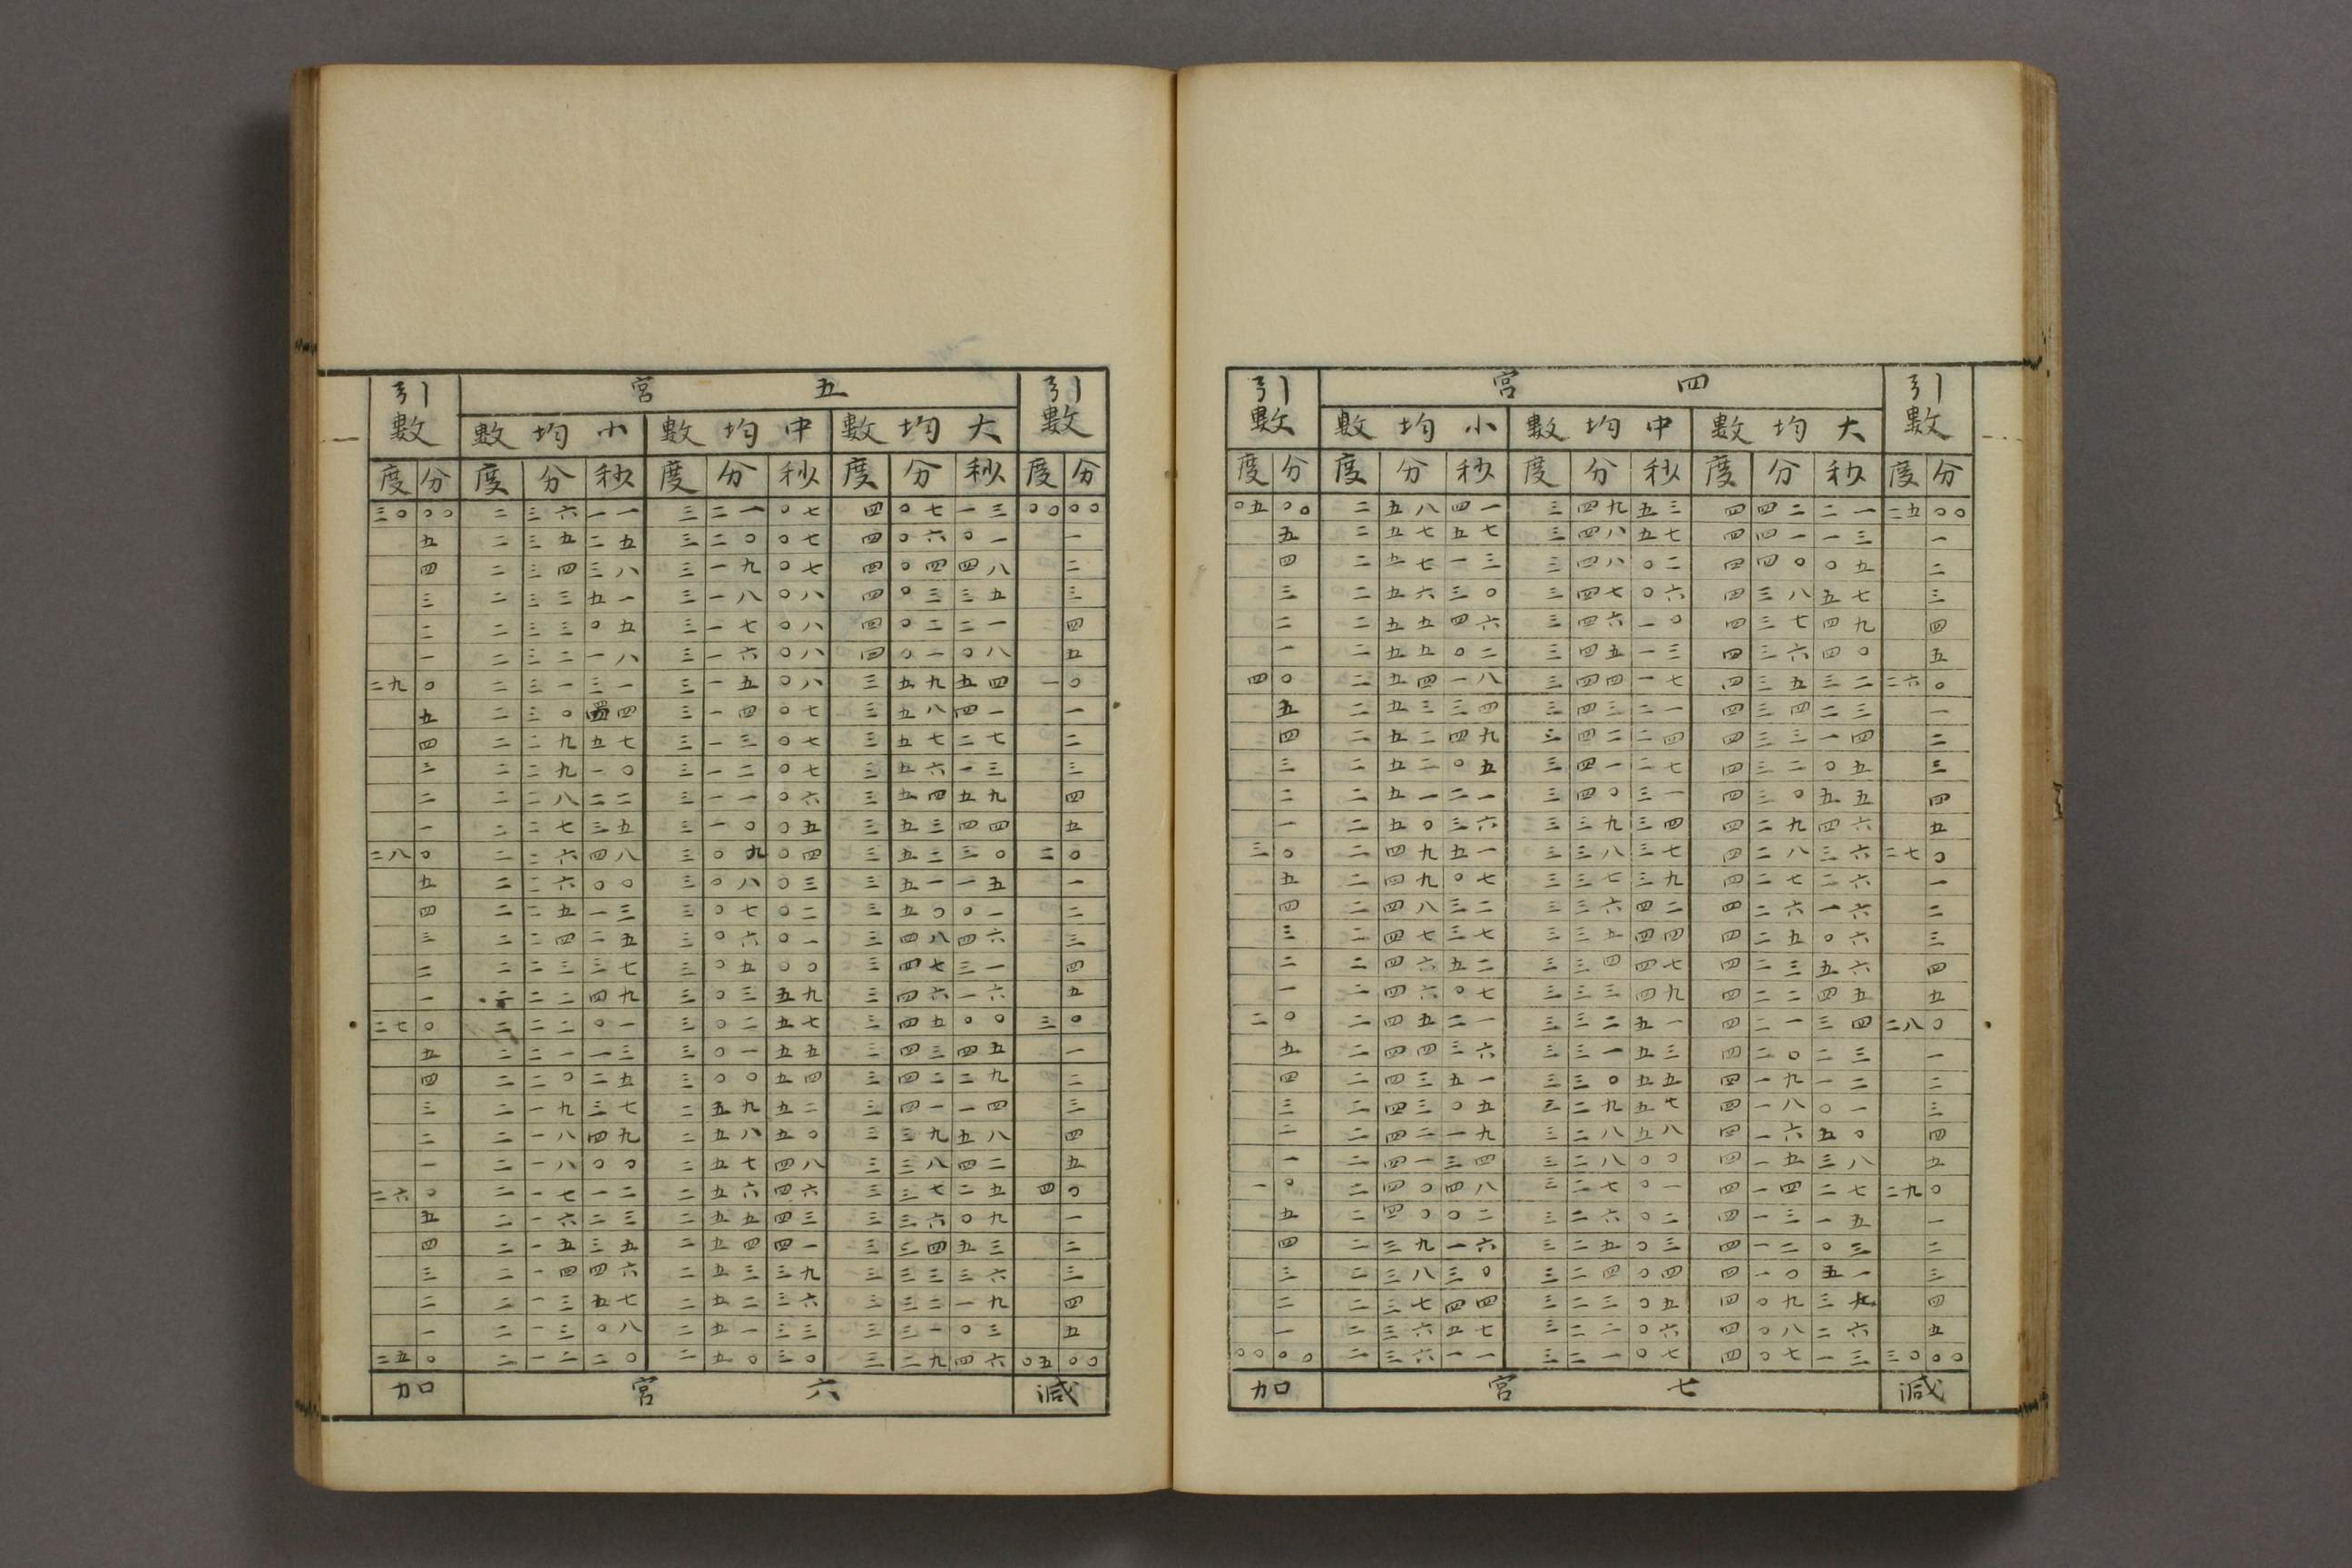 引數 四宮 引數
大均數 中均數 小均數
度 分 度 分 秒 度 分 秒 度 分 秒 度 分
〇五 〇〇 二 五八 四一 三 四九 五三 四 四二 二一 二五 〇〇
五 二 五七 五七 三 四八 五七 四 四一 一三 一
四 二 五七 一三 三 四八 〇二 四 四〇 〇五 二
三 二 五六 三〇 三 四七 〇六 四 三八 五七 三
二 二 五五 四六 三 四六 一〇 四 三七 四九 四
一 二 五五 〇二 三 四五 一三 四 三六 四〇 五
四 〇 二 五四 一八 三 四四 一七 四 三五 三二 二六 〇
五 二 五三 三四 三 四三 二一 四 三四 二三 一
四 二 五二 四九 三 四二 二四 四 三三 一四 二
三 二 五二 〇五 三 四一 二七 四 三二 〇五 三
二 二 五一 二一 三 四〇 三一 四 三〇 五五 四
一 二 五〇 三六 三 三九 三四 四 二九 四六 五
三 〇 二 四九 五一 三 三八 三七 四 二八 三六 二七 〇
五 二 四九 〇七 三 三七 三九 四 二七 二六 一
四 二 四八 三二 三 三六 四二 四 二六 一六 二
三 二 四七 三七 三 三五 四四 四 二五 〇六 三
二 二 四六 五二 三 三四 四七 四 二三 五六 四
一 二 四六 〇七 三 三三 四九 四 二二 四五 五
二 〇 二 四五 二一 三 三二 五一 四 二一 三四 二八 〇
五 二 四四 三六 三 三一 五三 四 二〇 二三 一
四 二 四三 五一 三 三〇 五五 四 一九 一二 二
三 二 四三 〇五 三 二九 五七 四 一八 〇一 三
二 二 四二 一九 三 二八 五八 四 一六 五〇 四
一 二 四一 三四 三 二八 〇〇 四 一五 三八 五
一 〇 二 四〇 四八 三 二七 〇一 四 一四 二七 二九 〇
五 二 四〇 〇二 三 二六 〇二 四 一三 一五 一
四 二 三九 一六 三 二五 〇三 四 一二 〇三 二
三 二 三八 三〇 三 二四 〇四 四 一〇 五一 三
二 二 三七 四四 三 二三 〇五 四 〇九 三 四
一 二 三六 五七 三 二二 〇六 四 〇八 二六 五
〇〇 〇〇 二 三六 一一 三 二一 〇七 四 〇七 一三 三〇 〇〇
減 七宮 加
引數 五宮 引數
大均數 中均數 小均數
度 分 度 分 秒 度 分 秒 度 分 秒 度 分
三〇 〇〇 二 三六 一一 三 二一 〇七 四 〇七 一三 〇〇 〇〇
五 二 三五 二五 三 二〇 〇七 四 〇六 〇一 一
四 二 三四 三八 三 一九 〇七 四 〇四 四八 二
三 二 三三 五一 三 一八 〇八 四 〇三 三五 三
二 二 三三 〇五 三 一七 〇八 四 〇二 二一 四
一 二 三二 一八 三 一六 〇八 四 〇一 〇八 五
二九 〇 二 三一 三一 三 一五 〇八 三 五九 五四 一 〇
五 二 三〇 四四 三 一四 〇七 三 五八 四一 一
四 二 二九 五七 三 一三 〇七 三 五七 二七 二
三 二 二九 一〇 三 一二 〇七 三 五六 一三 三
二 二 二八 二二 三 一一 〇六 三 五四 五九 四
一 二 二七 三五 三 一〇 〇五 三 五三 四四 五
二八 〇 二 二六 四八 三 〇九 〇四 三 五二 三〇 二 〇
五 二 二六 〇〇 三 〇八 〇三 三 五一 一五 一
四 二 二五 一三 三 〇七 〇二 三 五〇 〇一 二
三 二 二四 二五 三 〇六 〇一 三 四八 四六 三
二 二 二三 三七 三 〇五 〇〇 三 四七 三一 四
一 二 二二 四九 三 〇三 五九 三 四六 一六 五
二七 〇 二 二二 〇一 三 〇二 五七 三 四五 〇〇 三 〇
五 二 二一 一三 三 〇一 五五 三 四三 四五 一
四 二 二〇 二五 三 〇〇 五四 三 四二 二九 二
三 二 一九 三七 二 五九 五二 三 四一 一四 三
二 二 一八 四九 二 五八 五〇 三 三九 五八 四
一 二 一八 〇〇 二 五七 四八 三 三八 四二 五
二六 〇 二 一七 一二 二 五六 四六 三 三七 二五 四 〇
五 二 一六 二三 二 五五 四三 三 三六 〇九 一
四 二 一五 三五 二 五四 四一 三 三四 五三 二
三 二 一四 四六 二 五三 三九 三 三三 三六 三
二 二 一三 五七 二 五二 三六 三 三二 一九 四
一 二 一三 〇八 二 五一 三三 三 三一 〇三 五
二五 〇 二 一二 二〇 二 五〇 三〇 三 二九 四六 〇五 〇〇
減 六宮 加